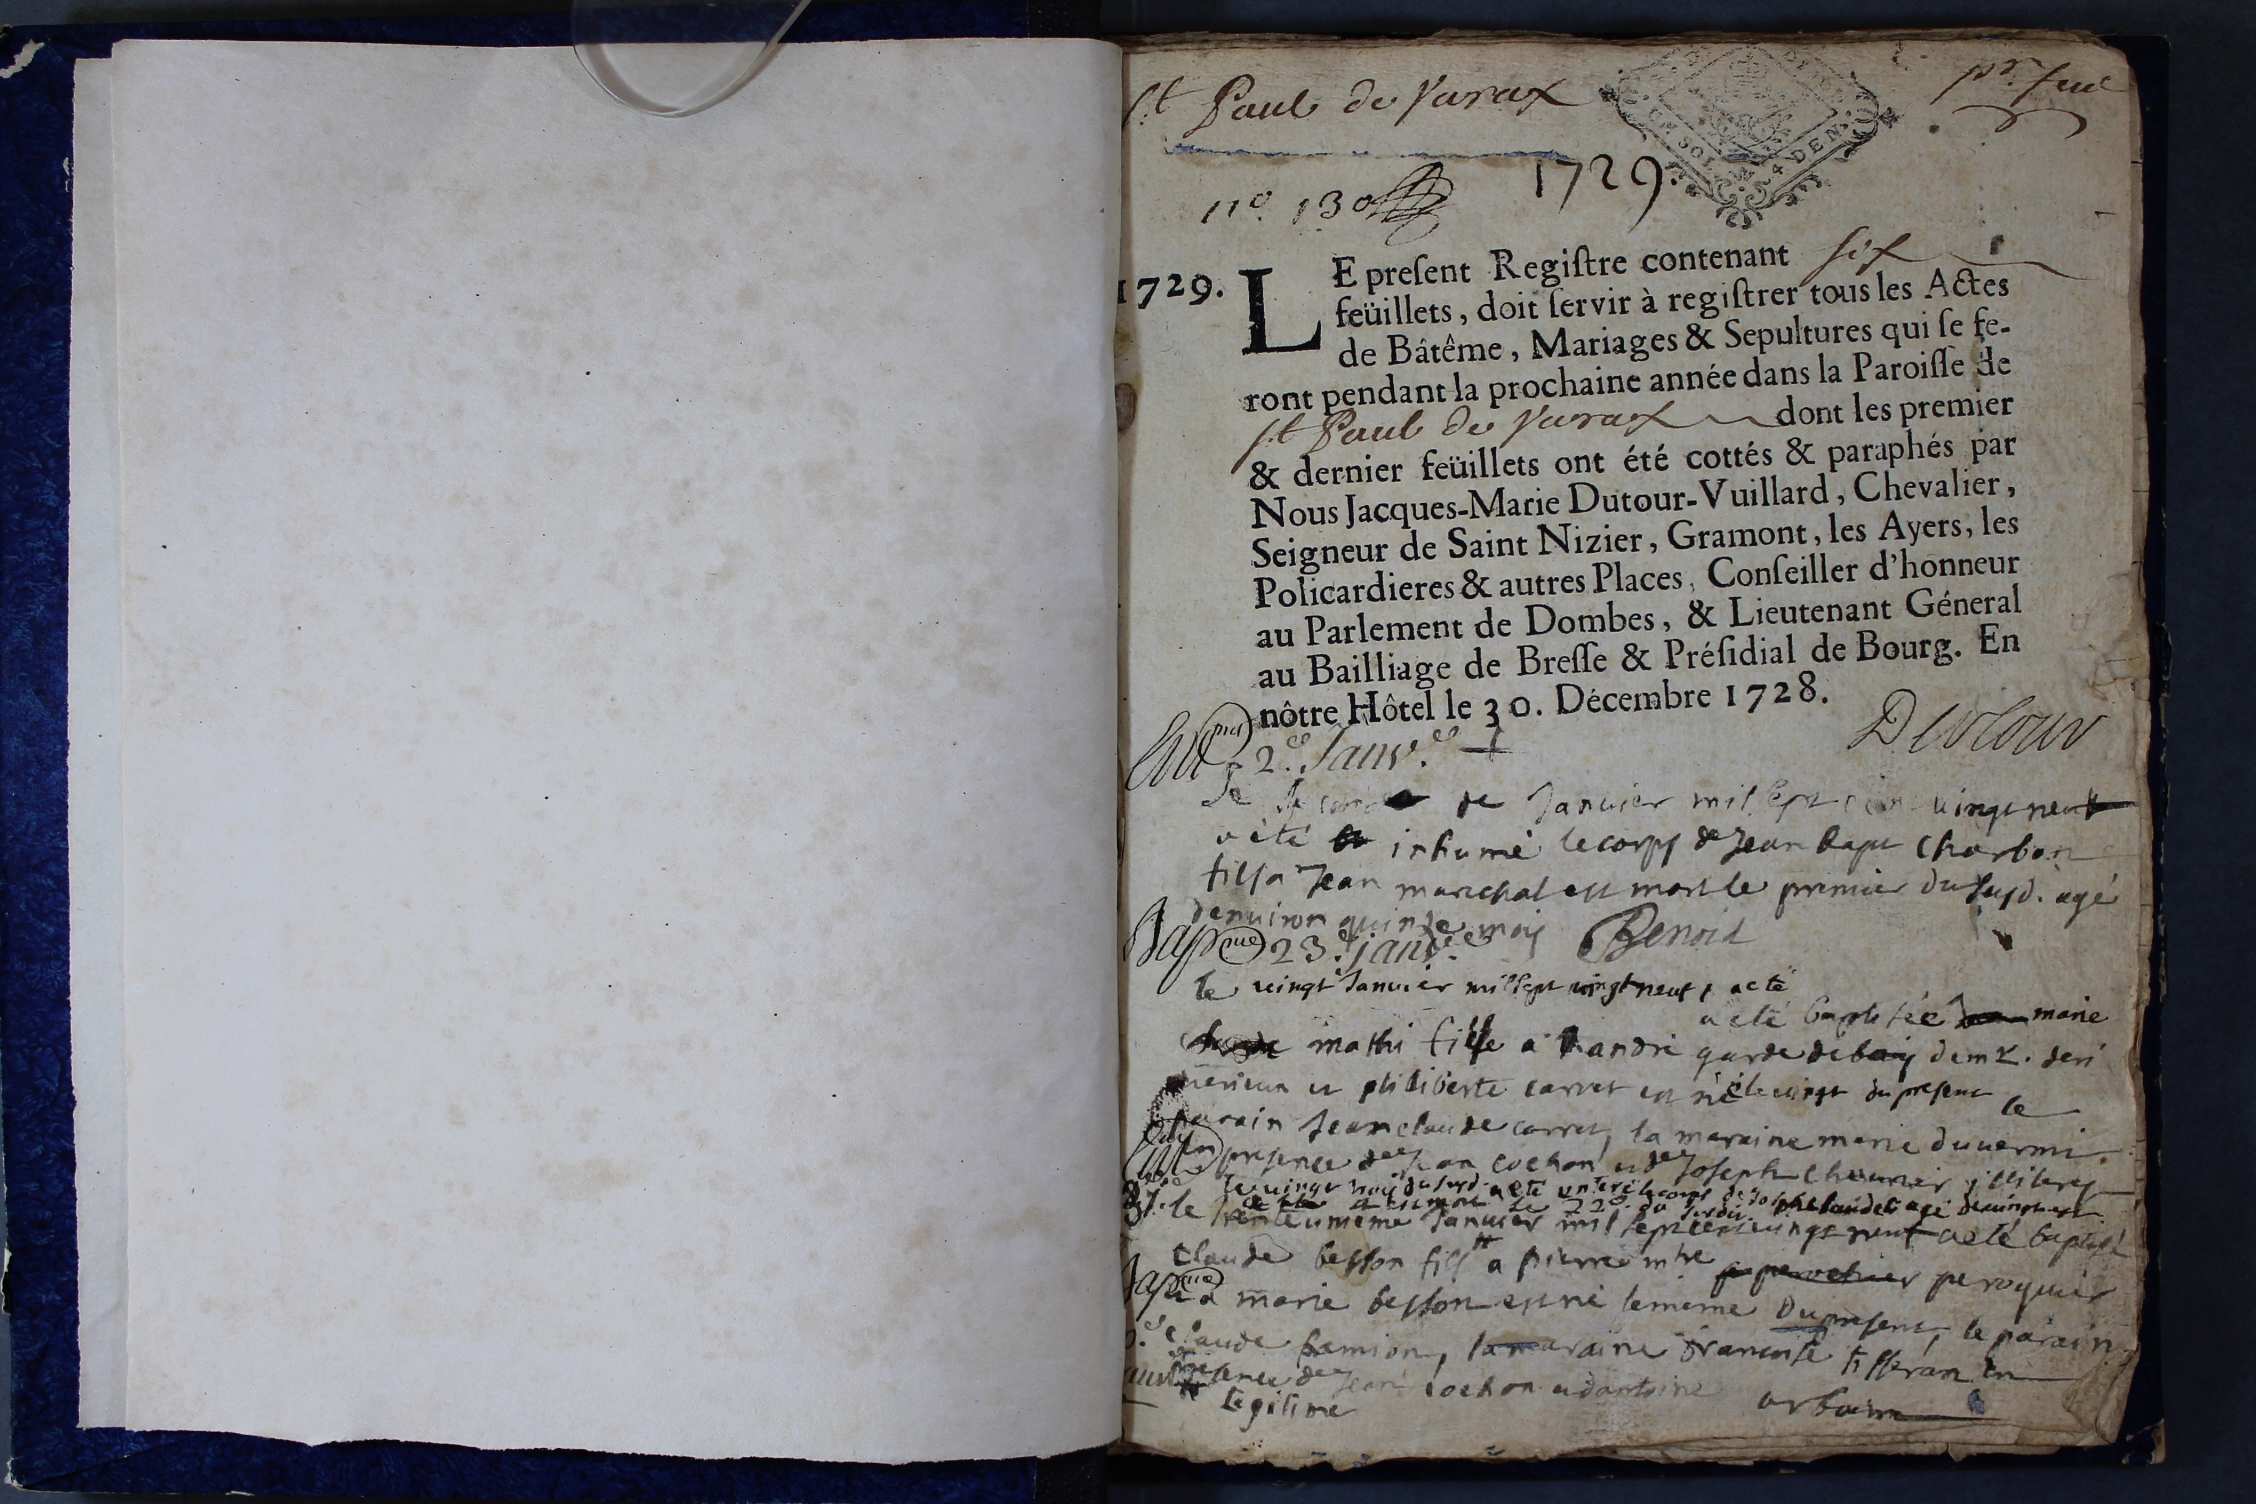 St Paul de Varax
pr. feuil
1729.
n° 130
SOL 4 DEN
1729. LE present Registre contenant six
feüillets, doit servir à registrer tous les Actes
de Bâtême, Mariages & Sepultures qui se fe-
ront pendant la prochaine année dans la Paroisse de
St Paul de Varax dont les premier
& dernier feüillets ont été cottés & paraphés par
Nous Jacques-Marie Dutour-Vuillard, Chevalier,
Seigneur de Saint Nizier, Gramont, les Ayers, les
Policardieres & autres Places, Conseiller d'honneur
au Parlement de Dombes, & Lieutenant Géneral
au Bailliage de Bresse & Présidial de Bourg. En
nôtre Hôtel le 30. Décembre 1728.
Dutour
2.e Janv.
de Janvier mil sept cent vingt neuf
a été inhumé le corps de Jean bapt Charbon
fils a Jean marechal est mort le premier du susd. agé
denuiron quinze mois Benoid
Bap 23. janv.
le vingt Janvier mil sept vingt neuf, a eté
a eté baptisée marie
mathi fille a andré garde de bois de mr. de
et philiberte carret est né le vingt du present le
parain Jean claude carret, la maraine marie duvermi
en presence de Jean cochon et de Joseph
le trente unieme Janvier mil sept cent vingt neuf a eté baptisé
claude besson fils a pierre mtre peroquier
et a marie besson est né le meme du present, le parain
claude pamion, la maraine francoise tisseran en
presence de Jean cochon et dantoine
legitime